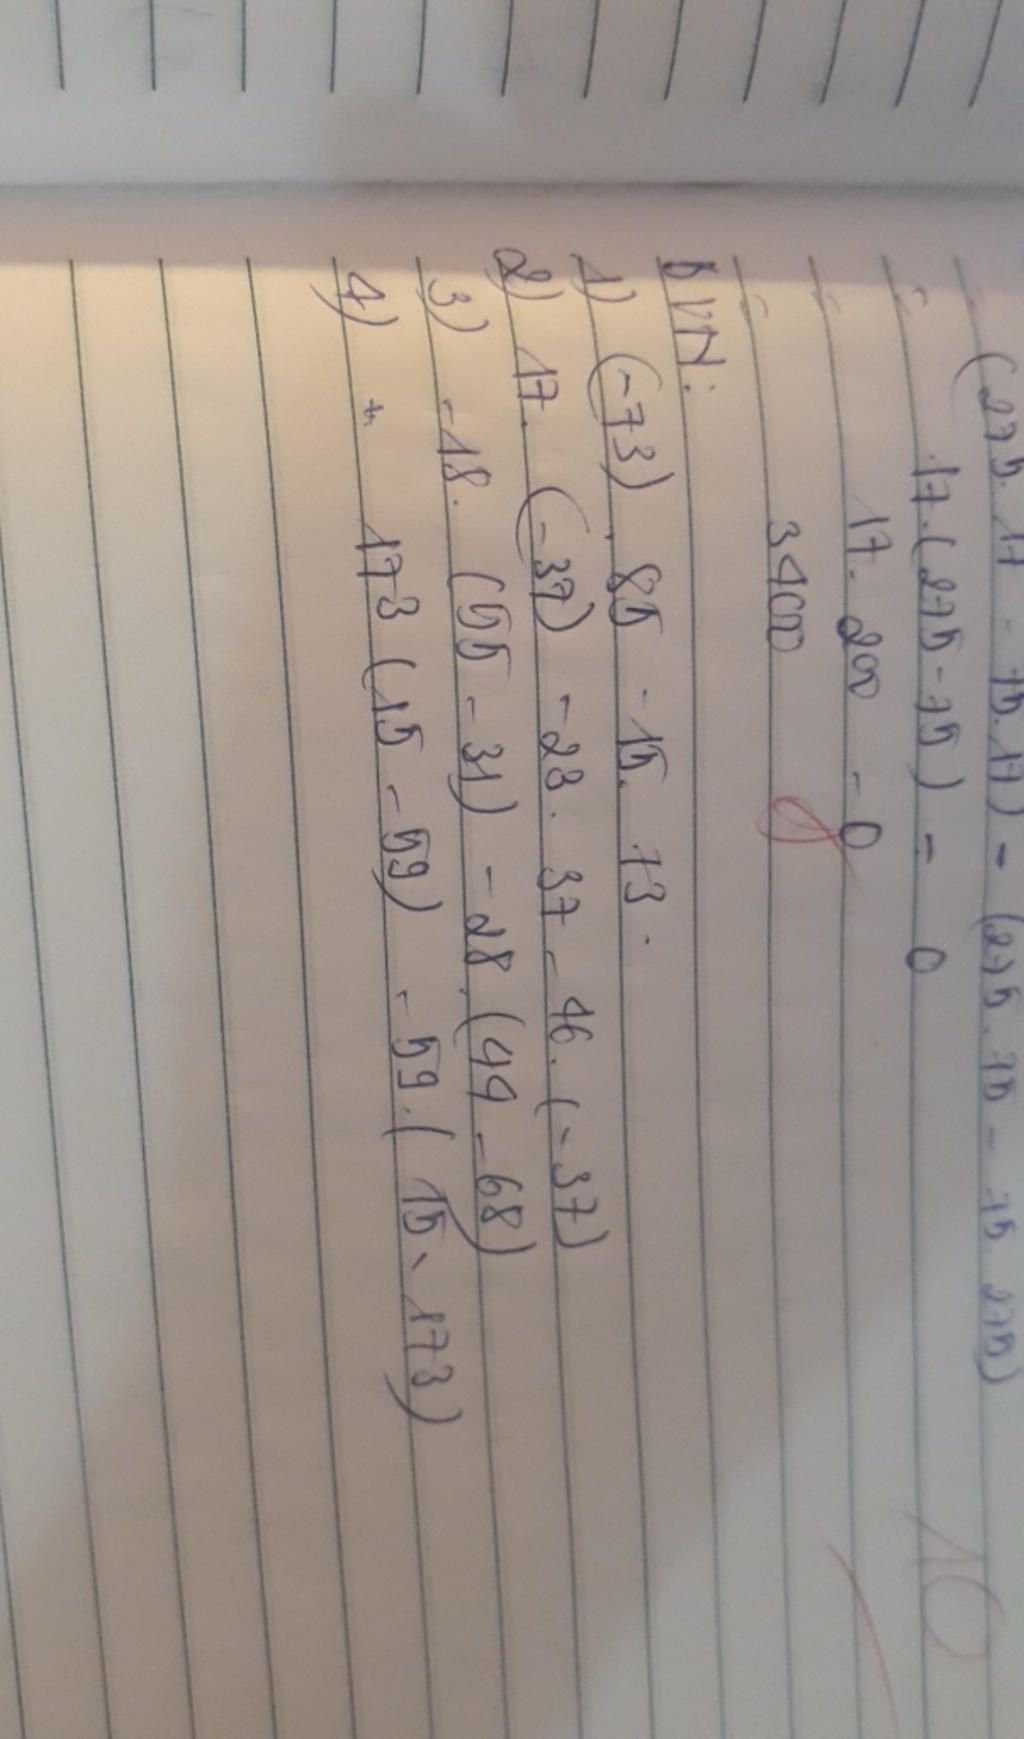 = (275. 17 - 75. 17) - (275. 75 - 75. 275)
= 17. (275 - 75) - 0
= 17. 200 - 0
= 3400
BVN:
1) (-73). 85 - 15. 73.
2) 17. (-37) - 23. 37 - 46. (-37)
3) -18. (55 - 31) - 28. (49 - 68)
4) 173 (15 - 59) - 59. (15 - 173)
10